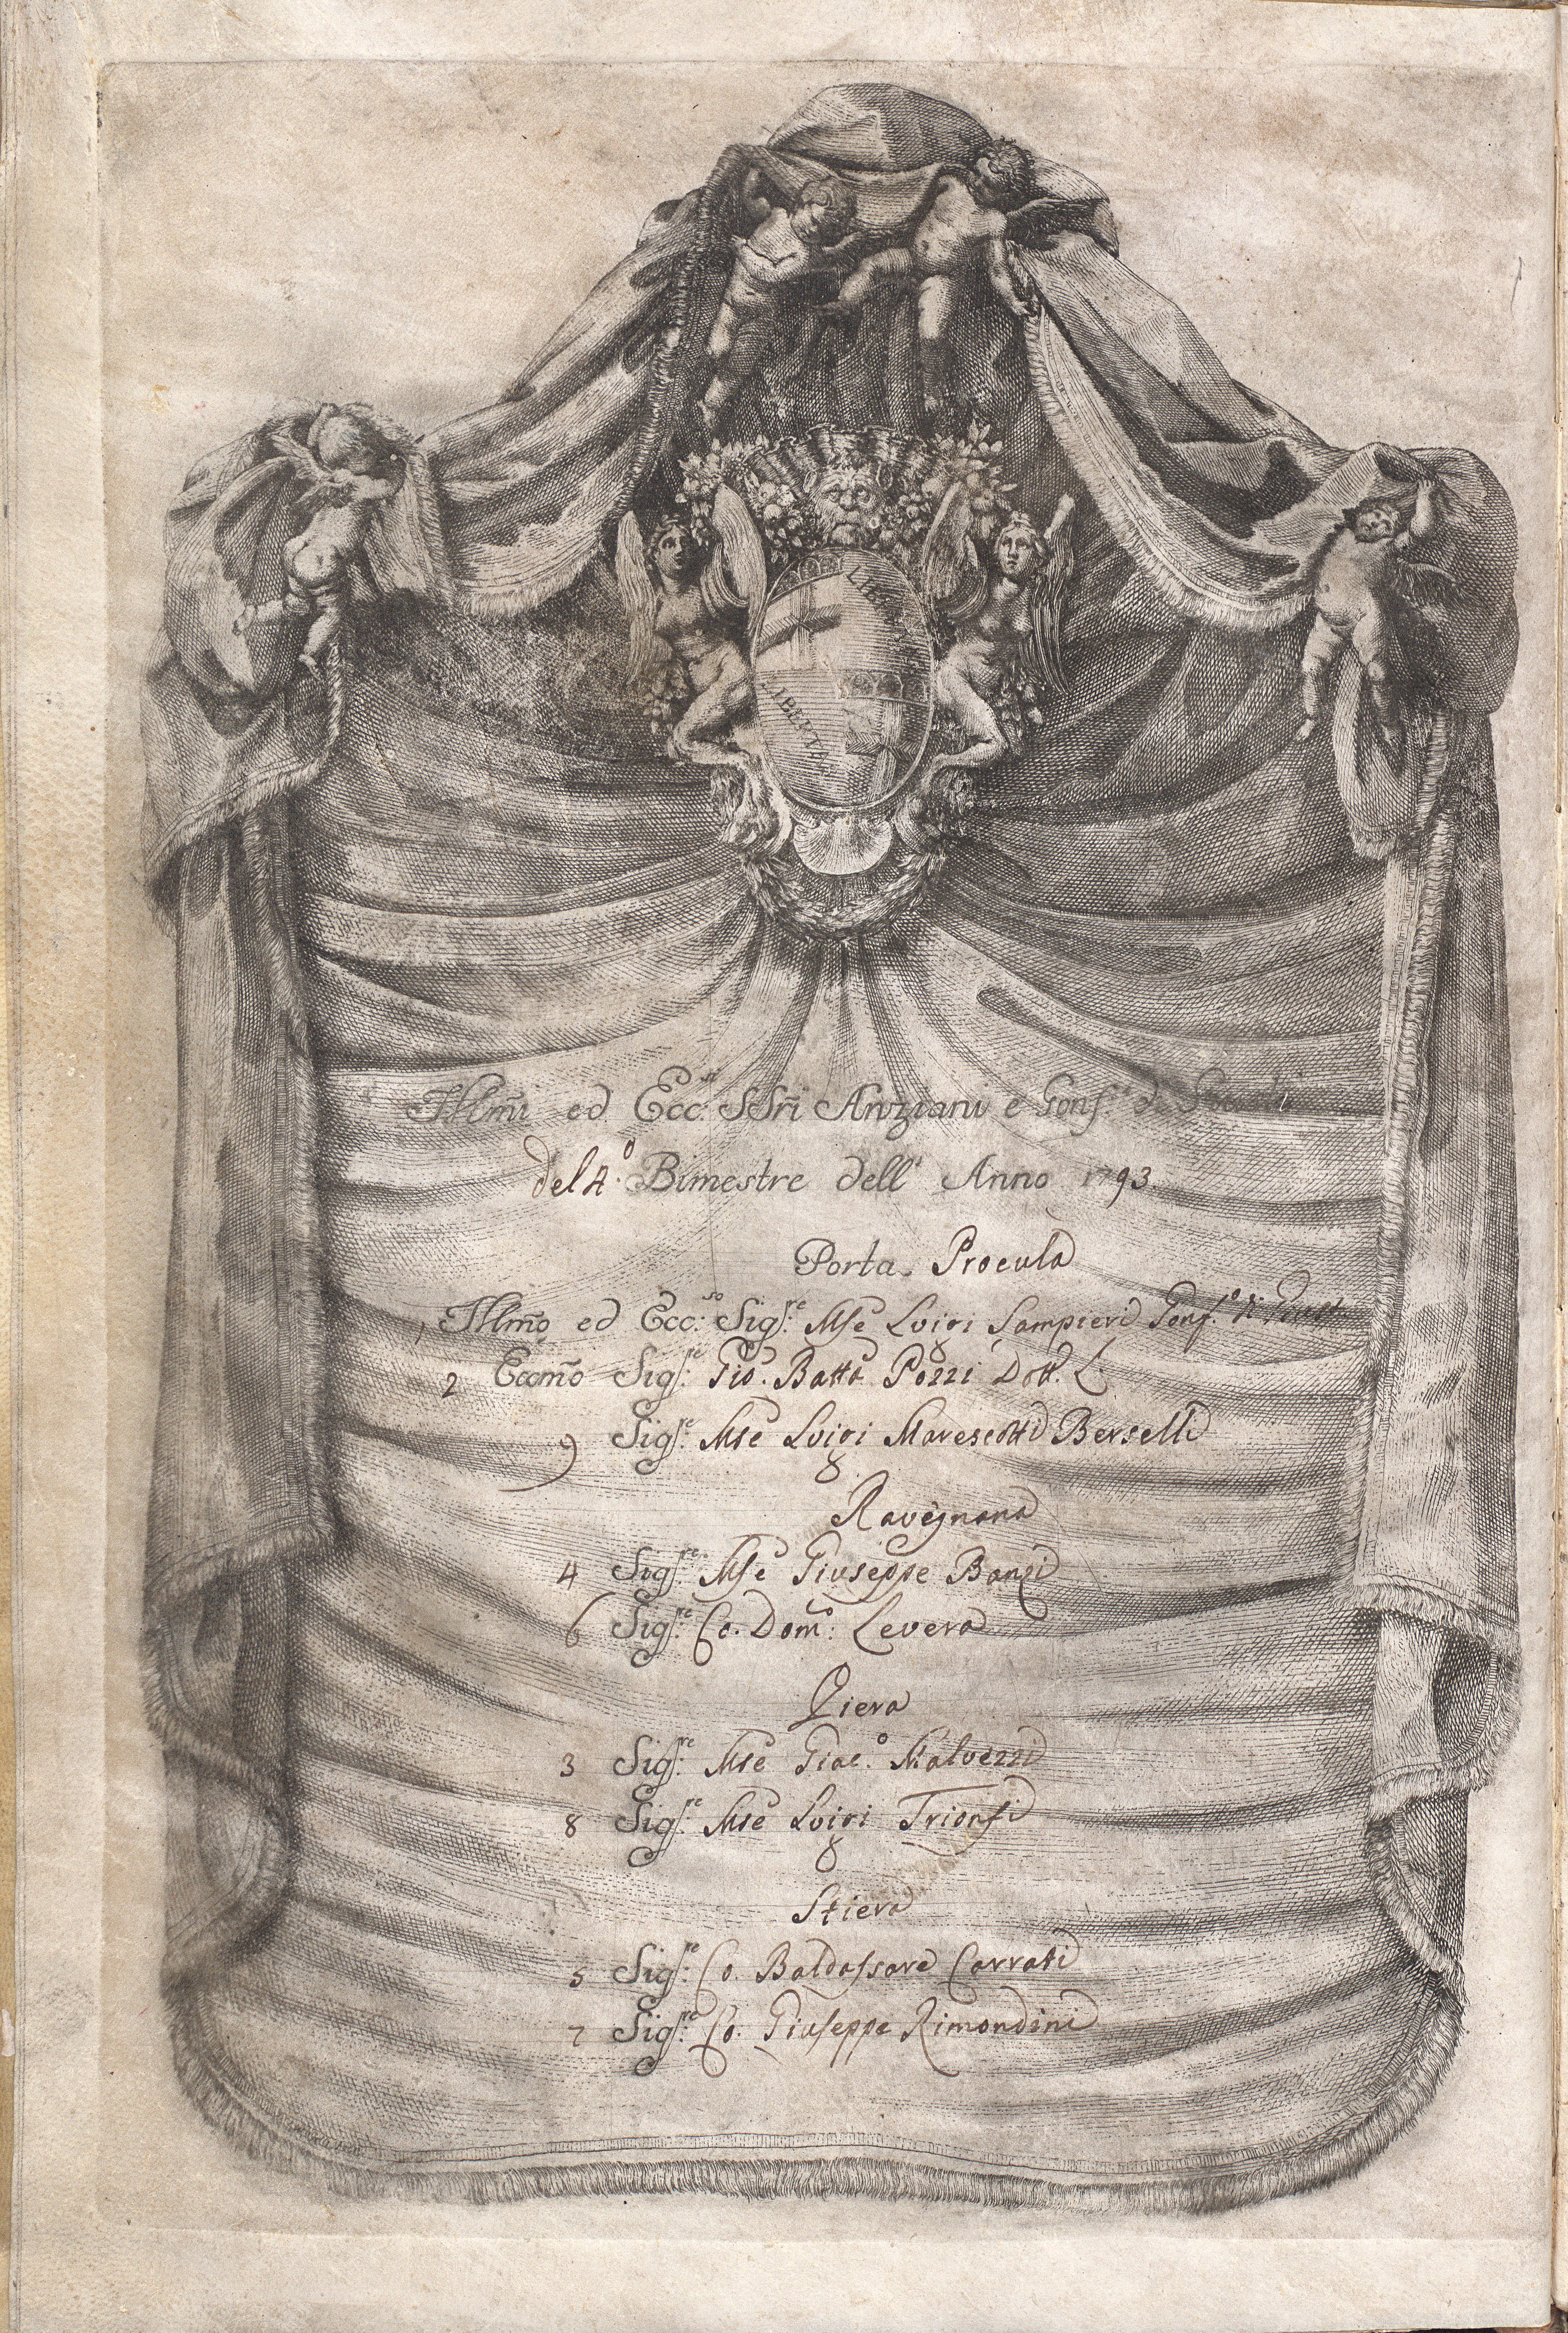 LIBERTAS
LIBERTAS
Illm̃i ed Ecc:si SSri Anziani e Gonf:i di
del 4.o Bimestre dell' Anno 1793
Porta Procula
1 Illm̃o ed Ecc:so Sig:re Mse Luigi Sampieri Gonf.o di
2 Eccm̃o Sig:re Gio. Batta Pozzi Dott. L
9 Sig:re Mse Luigi Marescotti Berselli
Ravegnana
4 Sig:re Mse Giuseppe Banzi
6 Sig:re Co. Dom:o Levera
Piera
3 Sig:re Mse Giac:o Malvezzi
8 Sig:re Mse Luigi Trionfi
Stiera
5 Sig:re Co. Baldassare Carrati
7 Sig:re Co. Giuseppe Rimondini